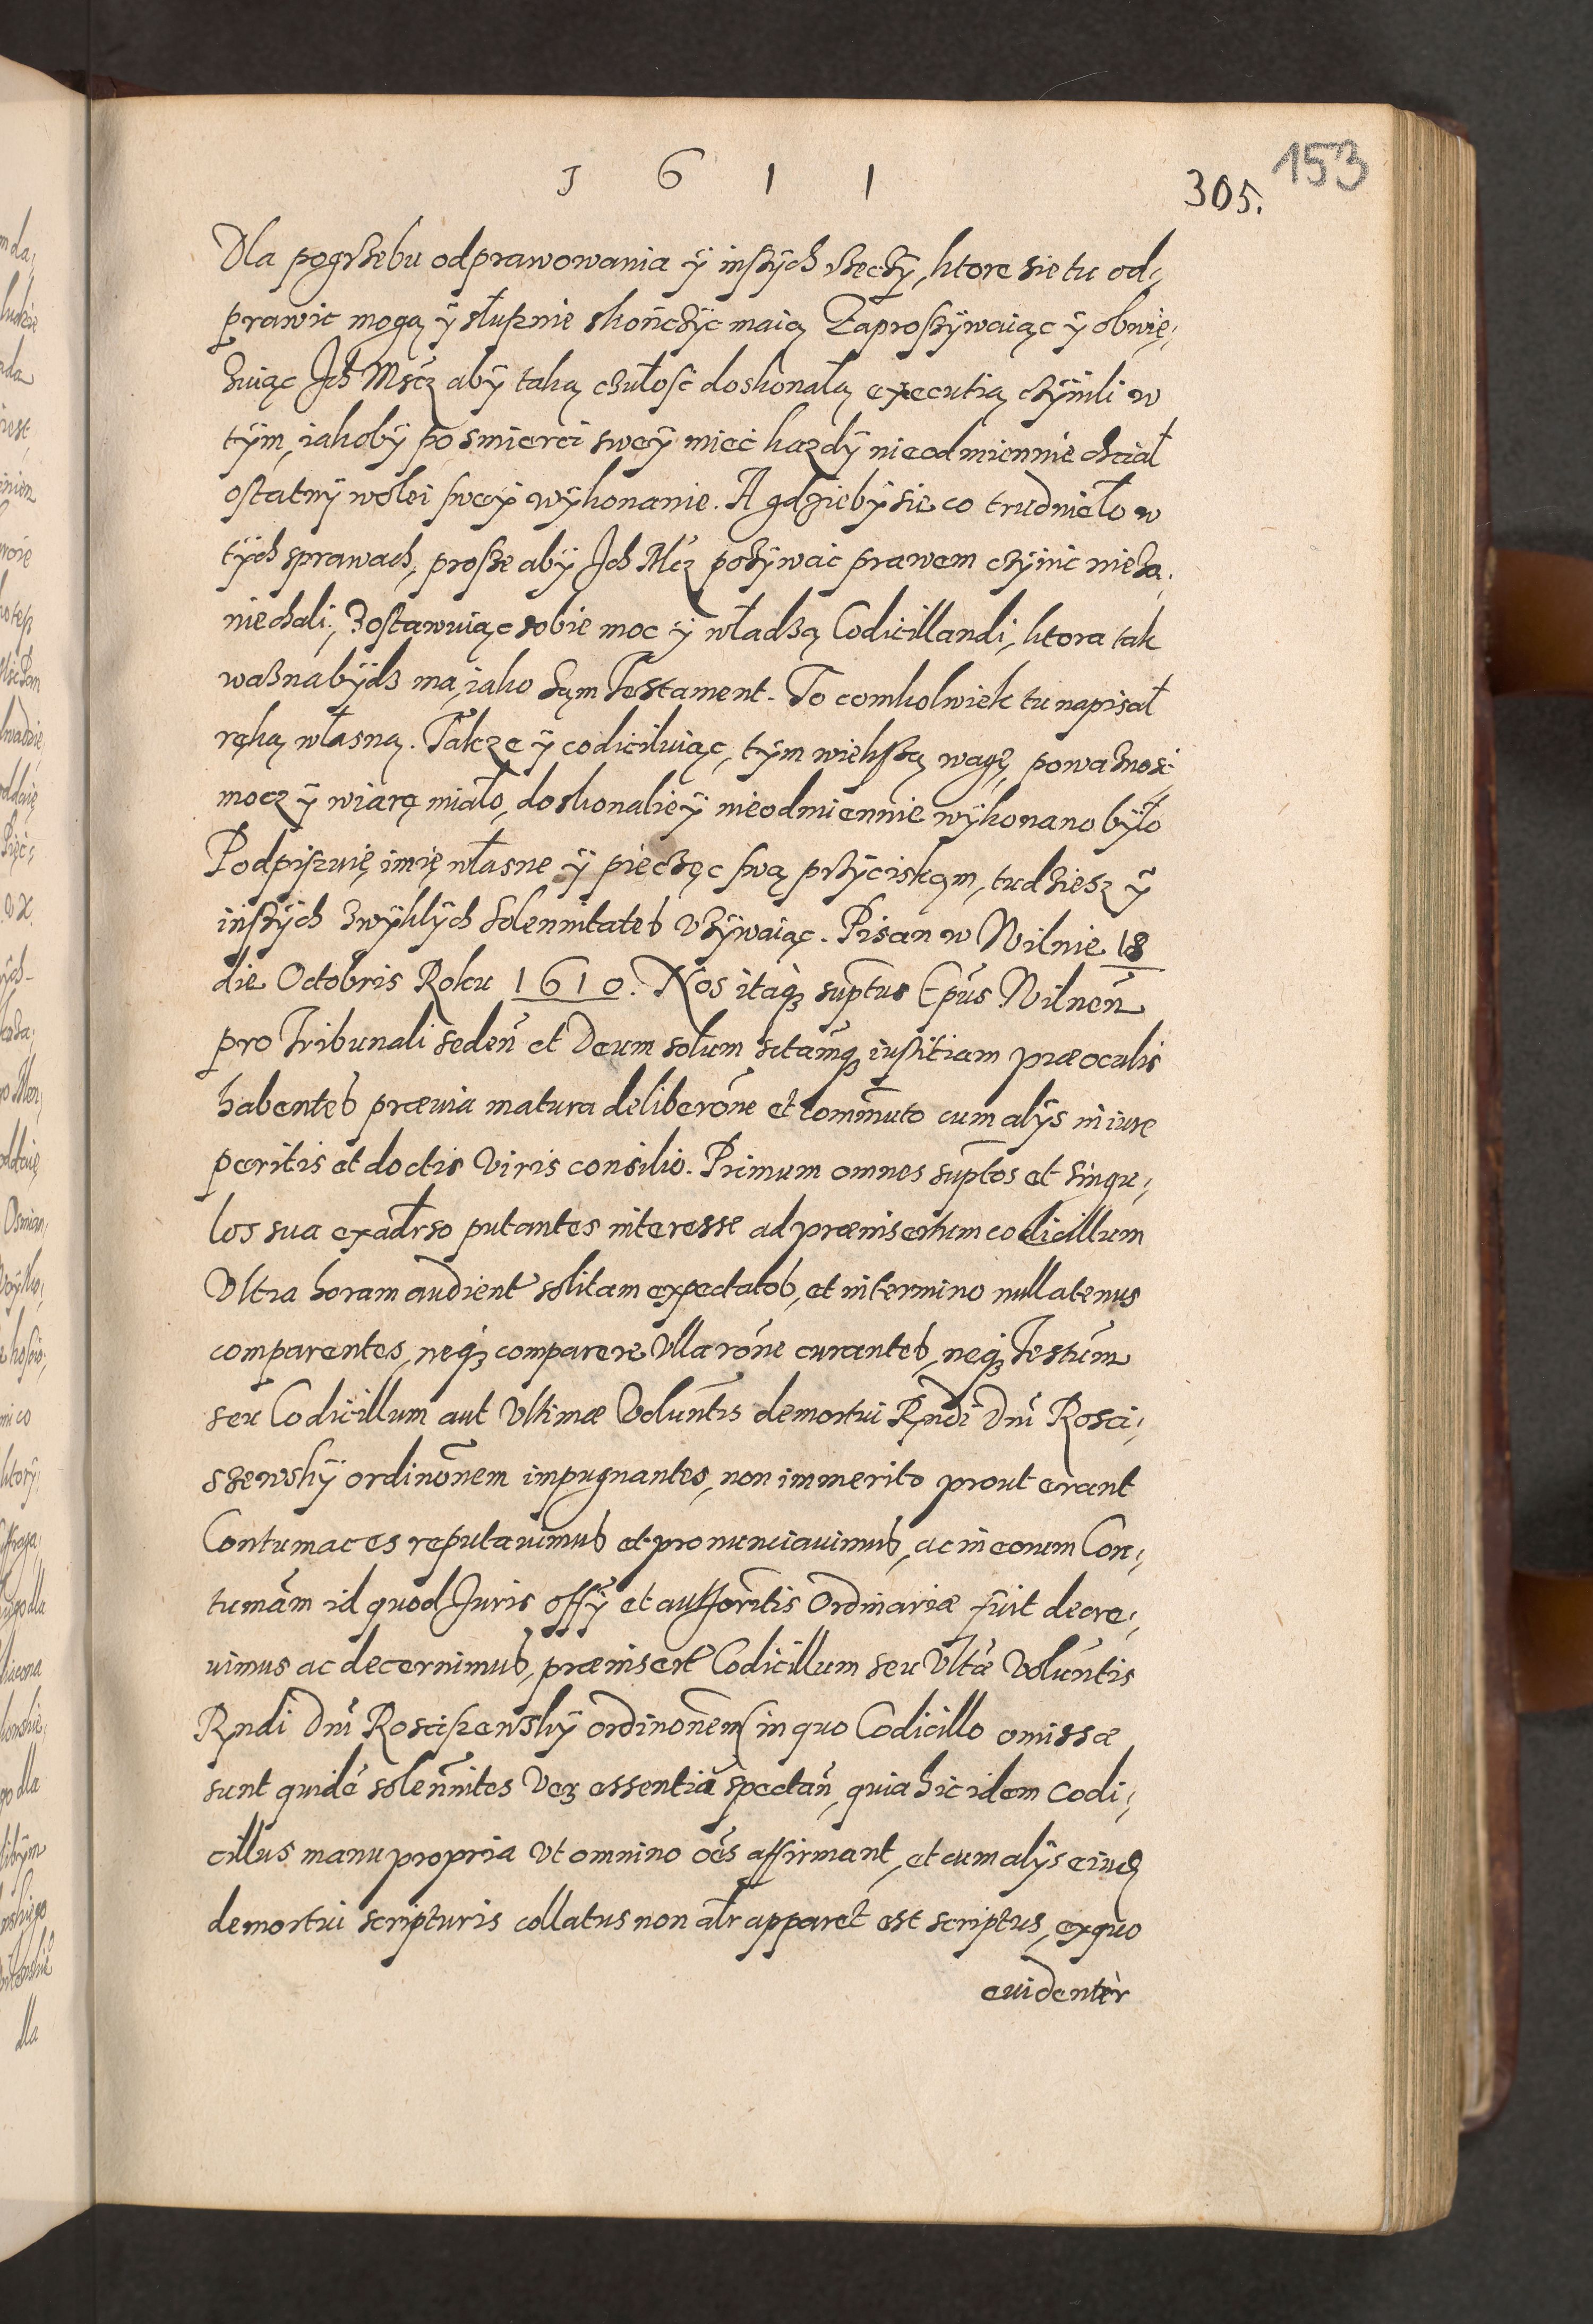 1 6 1 1
153
305.
Dla pogrzebu odprawowania ÿ inszÿch rzeczÿ, ktore sie tu od,
prawic mogą ÿ słusznie skończÿc maią Zaproszÿwaiąc ÿ obwię,
zuiąc Ich Mscz abÿ taką czułość doskonałą executią czÿnili w
tÿm, iakobÿ po smierci sweÿ mieć kazdÿ nieodmiennie chciał
ostatnÿ wolei sweÿ wÿkonanie. A gdziebÿ sie co trudniało w
tÿch sprawach, prosze abÿ Ich Mcz pozÿwać prawem czÿnic nie za,
niechali, Zostawuiąc sobie moc ÿ władzą Codicillandi, ktora tak
wazna bÿdz ma, iako sąm Testament. To comkolwiek tu napisał
ręką własną. Takze ÿ codiciluiąc, tÿm wiekszą wagę, powaznosc
mocz ÿ wiarę miało, doskonalieÿ nieodmiennie wÿkonano bÿło
Podpiszuię imię własne ÿ pieczęc swą przÿciskąm, tudziesz ÿ
inszÿch zwÿklÿch Solennitates vzÿwaiąc. Pisan w Wilnie 18
die Octobris Roku 1610. Nos itaq̢ suptus Epūs Wilnen̄
pro Tribunali seden̄ et Deum solum sctāmq̢ iustitiam præ oculis
habentes præuia matura deliberōne et com̄muto cum alÿs in iure
peritis et doctis Viris consilio. Primum omnes suptos et singu,
los sua ex adrso putantes interesse ad præinsertum codicillum
Vltra horam audient solitam expectatos, et in termino nullatenus
comparentes, neq̢ comparere Vlla rōne curantes, neq̢ Testūm
seu Codicillum aut Vltimæ Voluntis demortui Rndi Dni Rosci,
szewskÿ ordinōnem impugnantes, non immerito prout erant
Contumaces reputauimus et pronunciauimus, ac in eorum Con,
tumām id quod Iuris offÿ et authoritis Ordinariæ fuit decre,
uimus ac decernimus, præinsert Codicillum seu Vltæ Voluntis
Rndi Dni Rosciszewskÿ ordinōnem (in quo Codicillo omissæ
sunt quidē solennites Vez essentiā spectān, quia hic idem Codi,
cillus manu propria Vt omnino oēs affirmant, et cum alÿs eiusd
demortui scripturis collatus non alr apparet est scriptus, ex quo
euidentèr